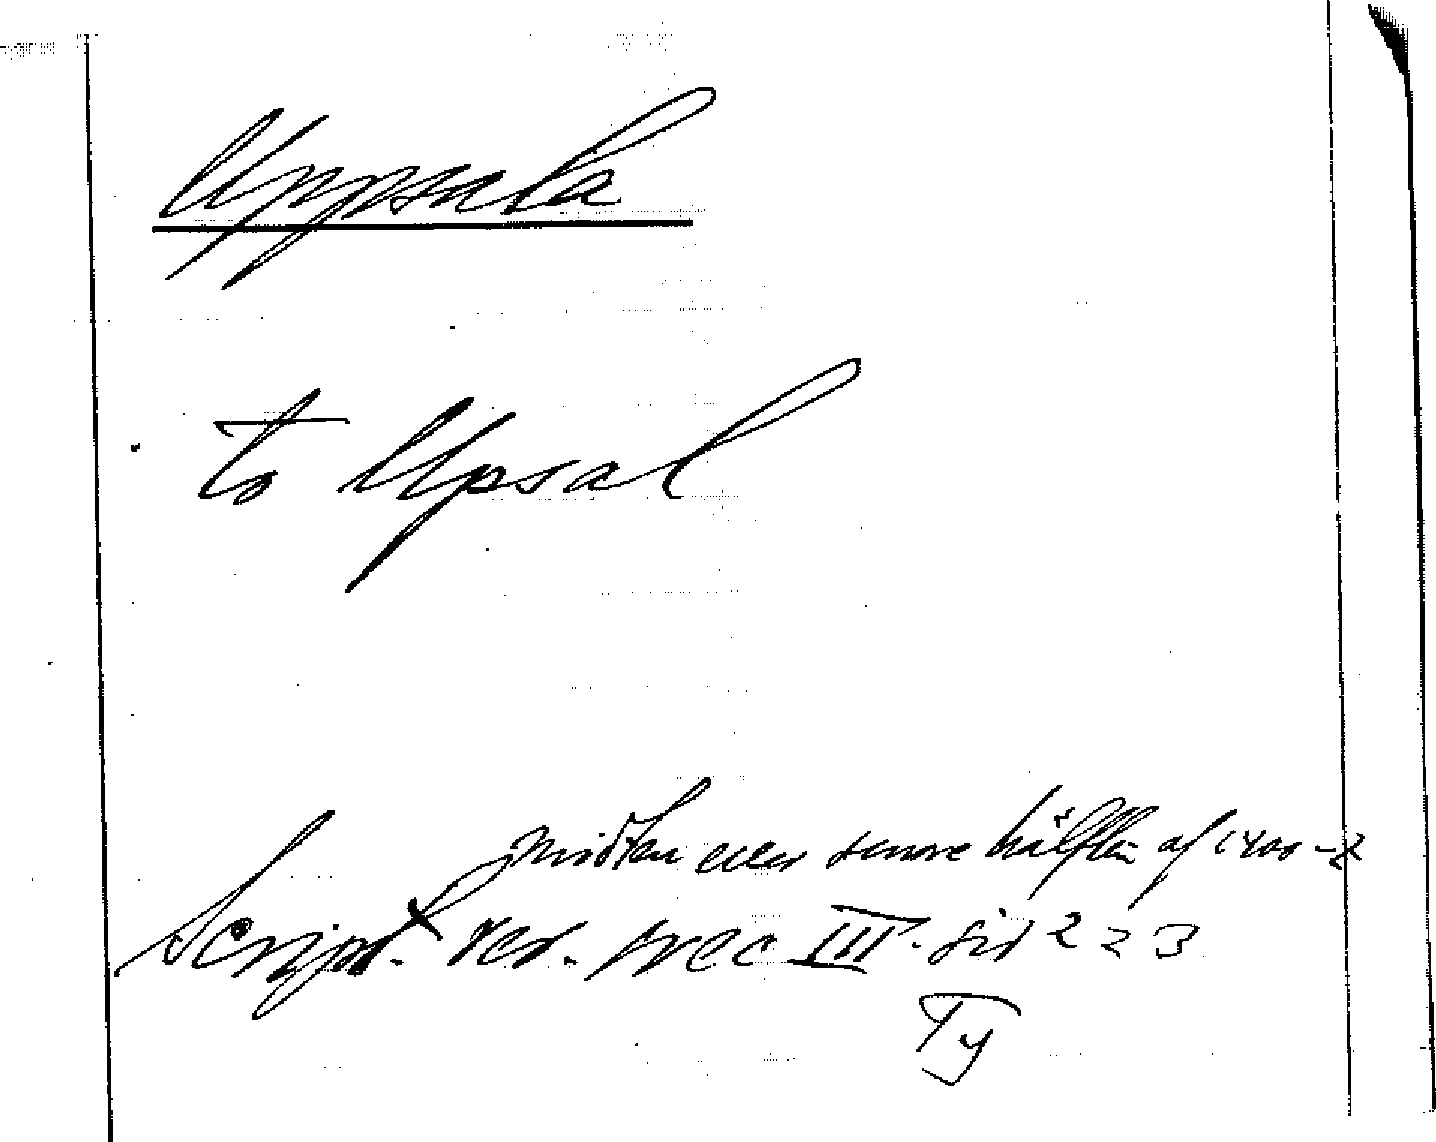 Uppsala
to Upsal
midten eller senare hälften af 1400-t
Script. rer. svec III. sid 223
Ty